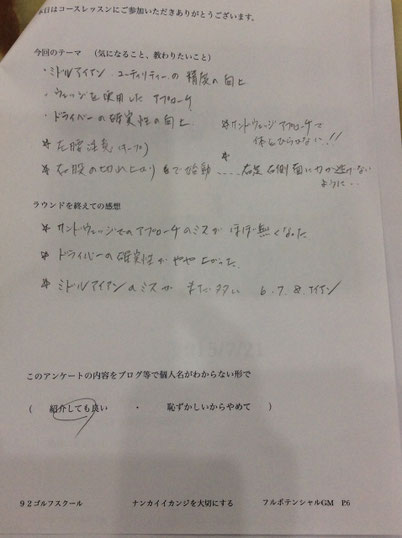 本日はコースレッスンにご参加いただきありがとうございます。
今回のテーマ （気になること、教わりたいこと）
・ミドルアイアン、ユーティリティーの精度の向上
・ウェッジを使用したアプローチ
・ドライバーの確実性の向上
※サンドウェッジアプローチで
体とひらかない!!
※左膝注意(キープ)
※
※右股の切れ上がりまで始動 ..... 右足右側面に力が逃げない
ように...
ラウンドを終えての感想
※サンドウェッジでのアプローチのミスがほぼ無くなった
※ドライバーの確実性がやや上がった。
※ミドルアイアンのミスがまだ多い 6.7.8.アイアン
このアンケートの内容をブログ等で個人名がわからない形で
（ 紹介しても良い ・ 恥ずかしいからやめて ）
９２ゴルフスクール ナンカイイカンジを大切にする フルポテンシャルGM P.6